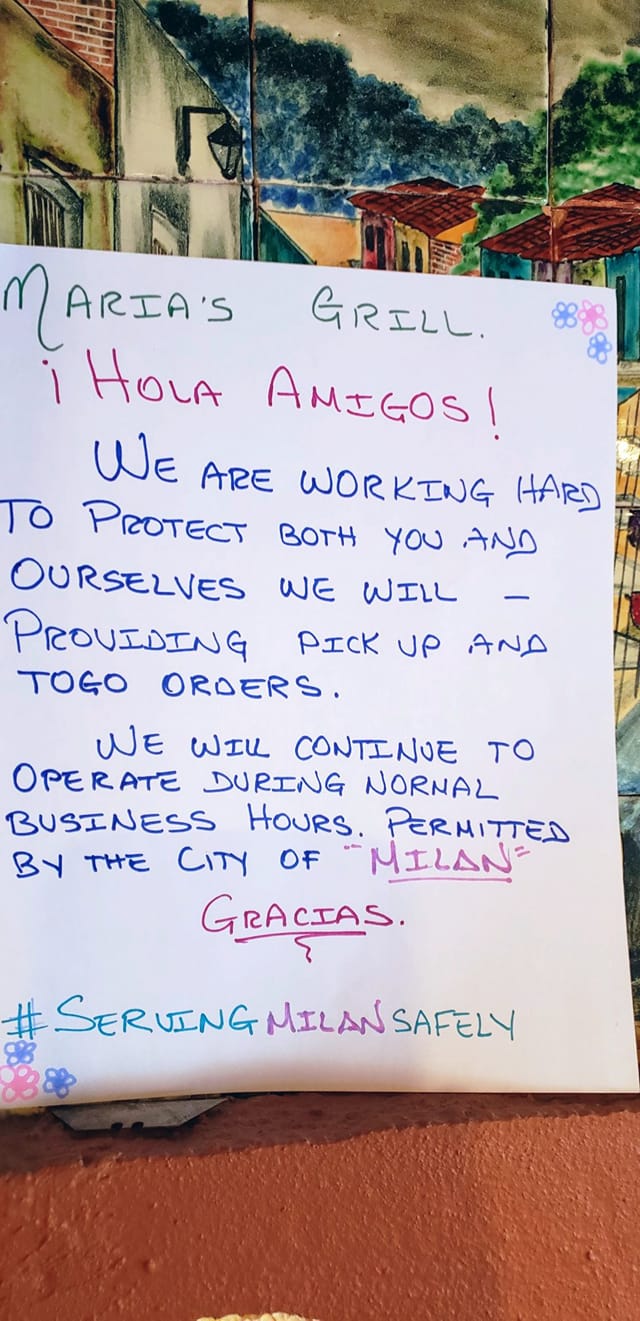 MARIA'S GRILL.
¡HOLA AMIGOS!
WE ARE WORKING HARD
TO PROTECT BOTH YOU AND
OURSELVES WE WILL –
PROVIDING PICK UP AND
TOGO ORDERS.
WE WILL CONTINUE TO
OPERATE DURING NORMAL
BUSINESS HOURS. PERMITTED
BY THE CITY OF "MILAN"
GRACIAS.
#SERVINGMILANSAFELY